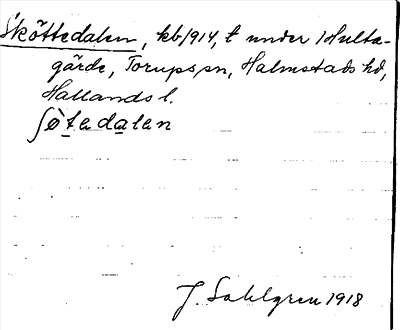 Sköttedalen, kb 1914, t under 1 Hulta-
gärde, Torups sn, Halmstads hd,
Hallands l.
ʃø̀tedalen
J. Sahlgren 1918